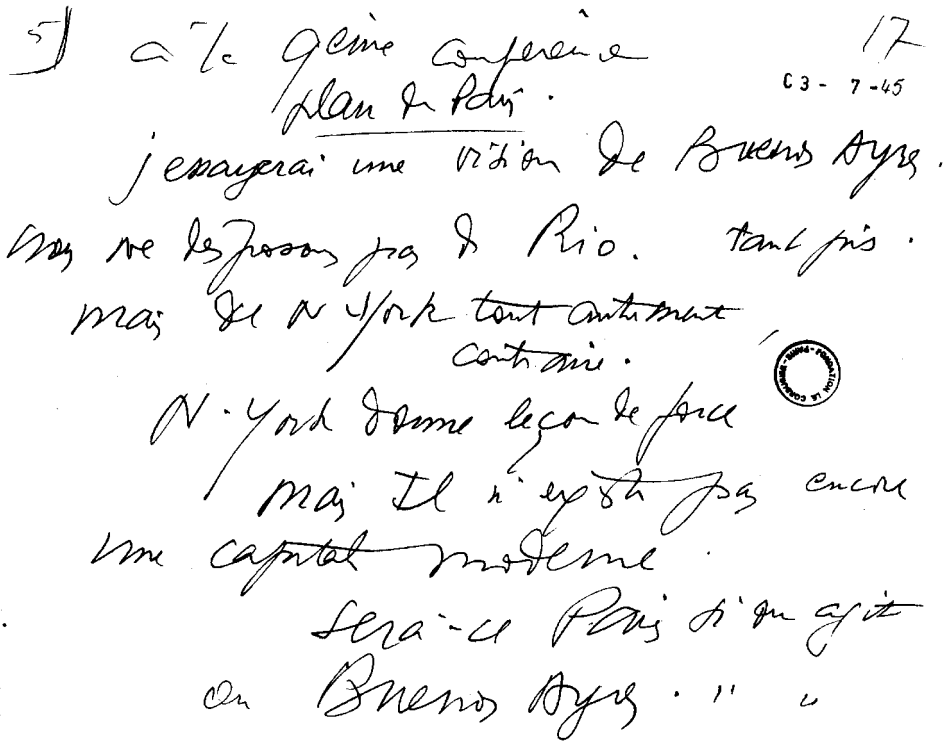 5) à la 9ème conférence 17
C3 - 7 -45
plan de Paris.
j'essayerai une vision de Buenos Ayres.
vous ne disposons pas de Rio. tant pis.
mais de N York tout autrement
contraire.
FONDATION LE CORBUSIER - PARIS -
N. York donne leçon de force
mais Il n'existe pas encore
une capitale moderne.
sera-ce Paris si on agit
ou Buenos Ayres. " "